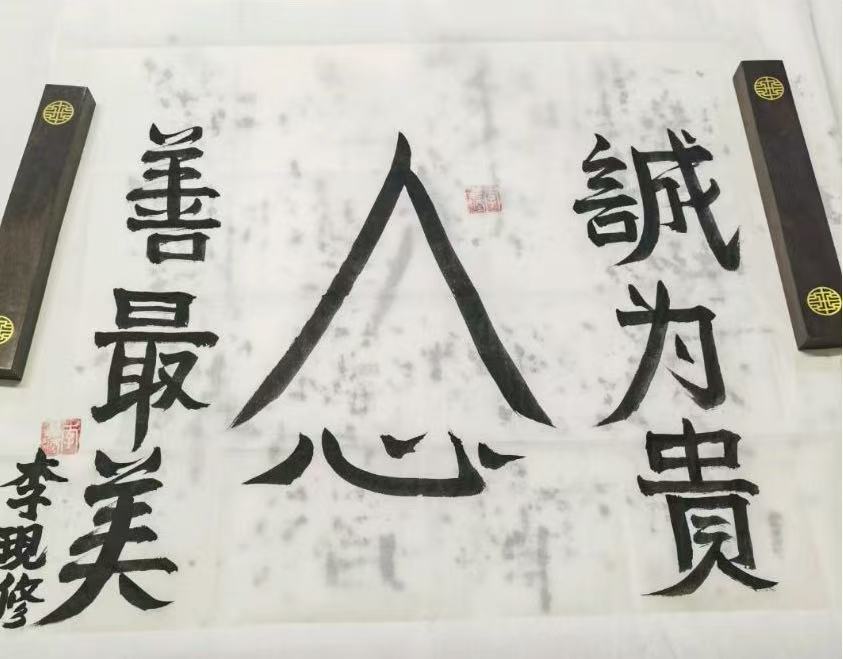 誠为貴
人心
善最美
李現修